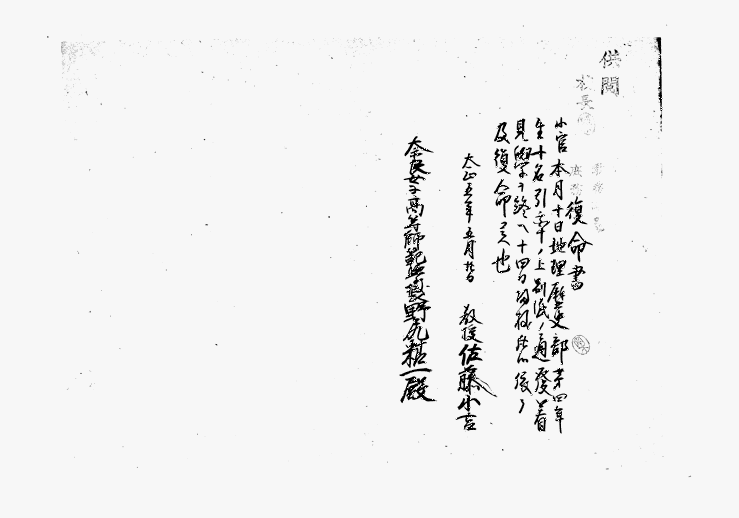 供閲
復命書
小官本月十日地理歴史部第四年
生十名引率ノ上別紙ノ通發着
見學ヲ終ヘ十四日歸校
及復命候也
大正五年五月
教授佐藤小吉
奈良女子高等師範學校長野尻精一殿